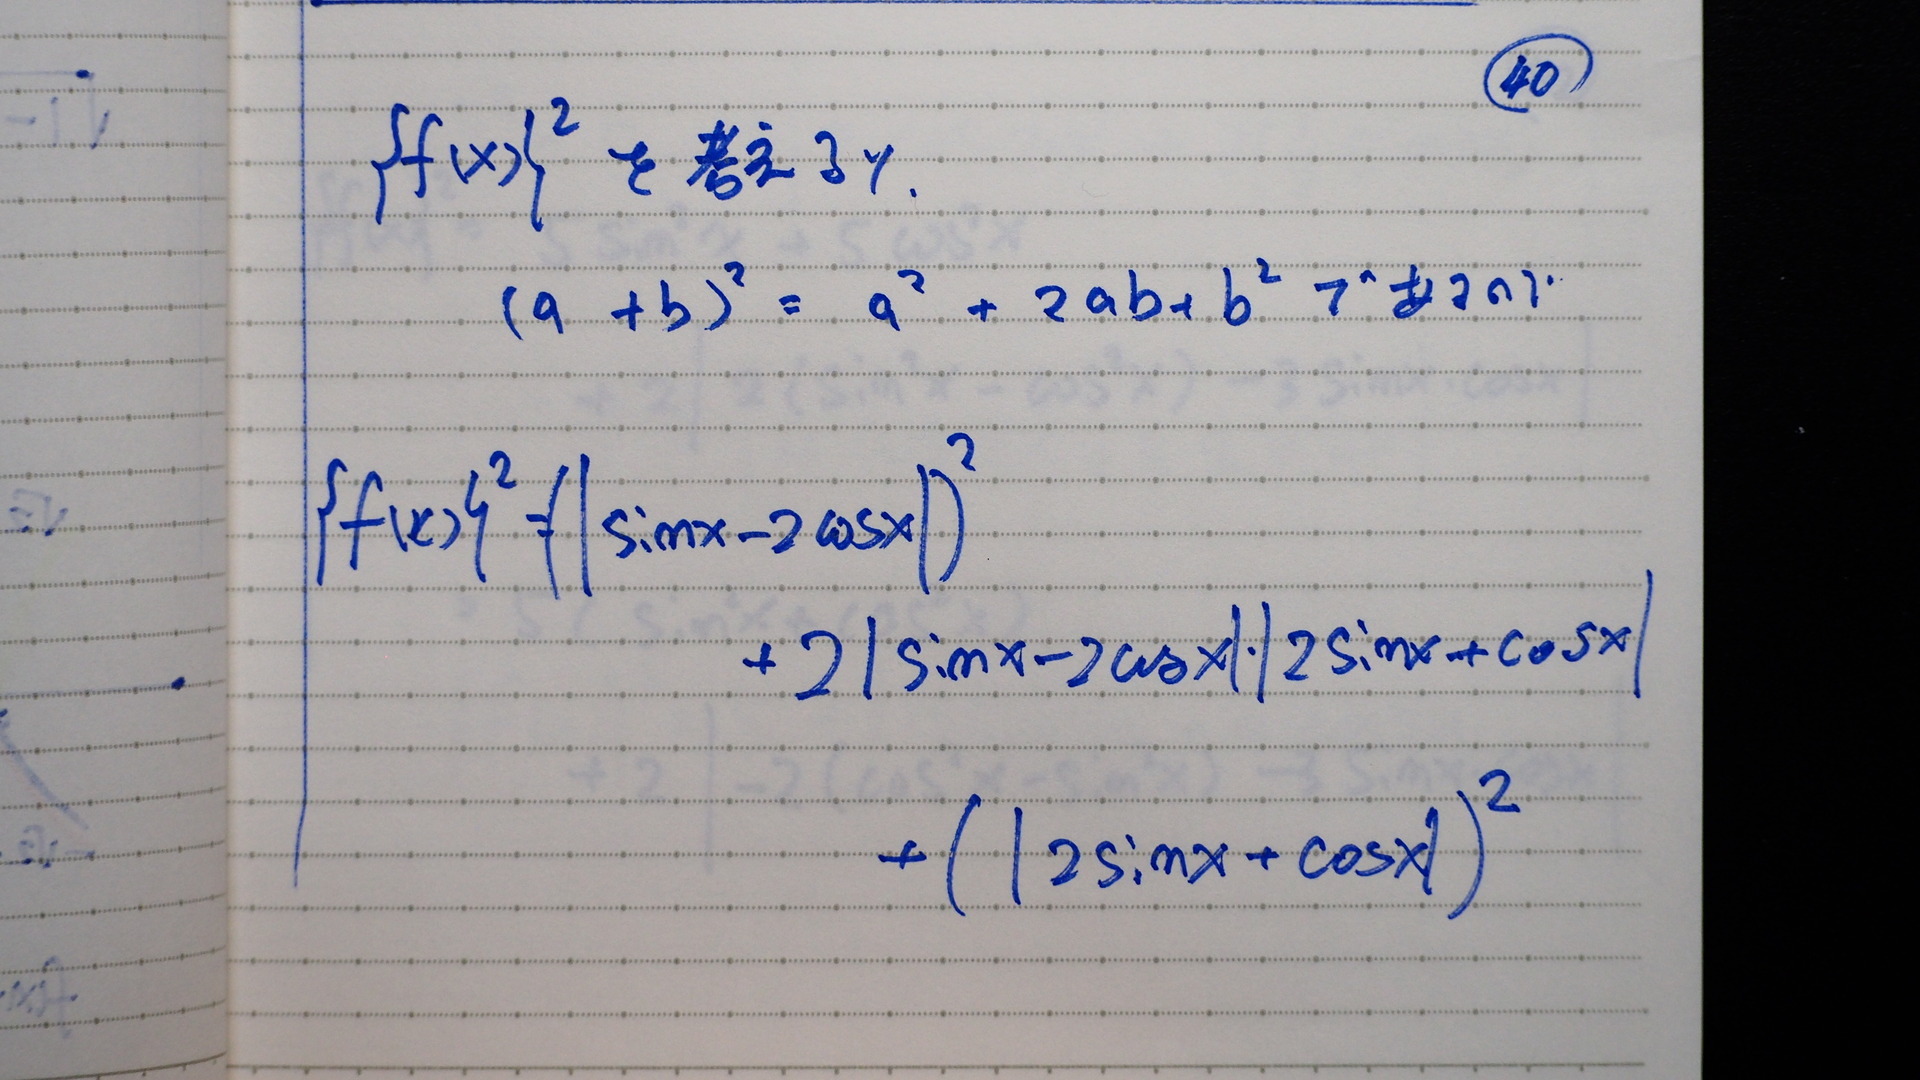 40
{f(x)}² を考えると.
(a + b)² = a² + 2ab + b² であるので.
{f(x)}² = (|sinx - 2cosx|)²
+ 2|sinx - 2cosx|・|2sinx + cosx|
+ (|2sinx + cosx|)²